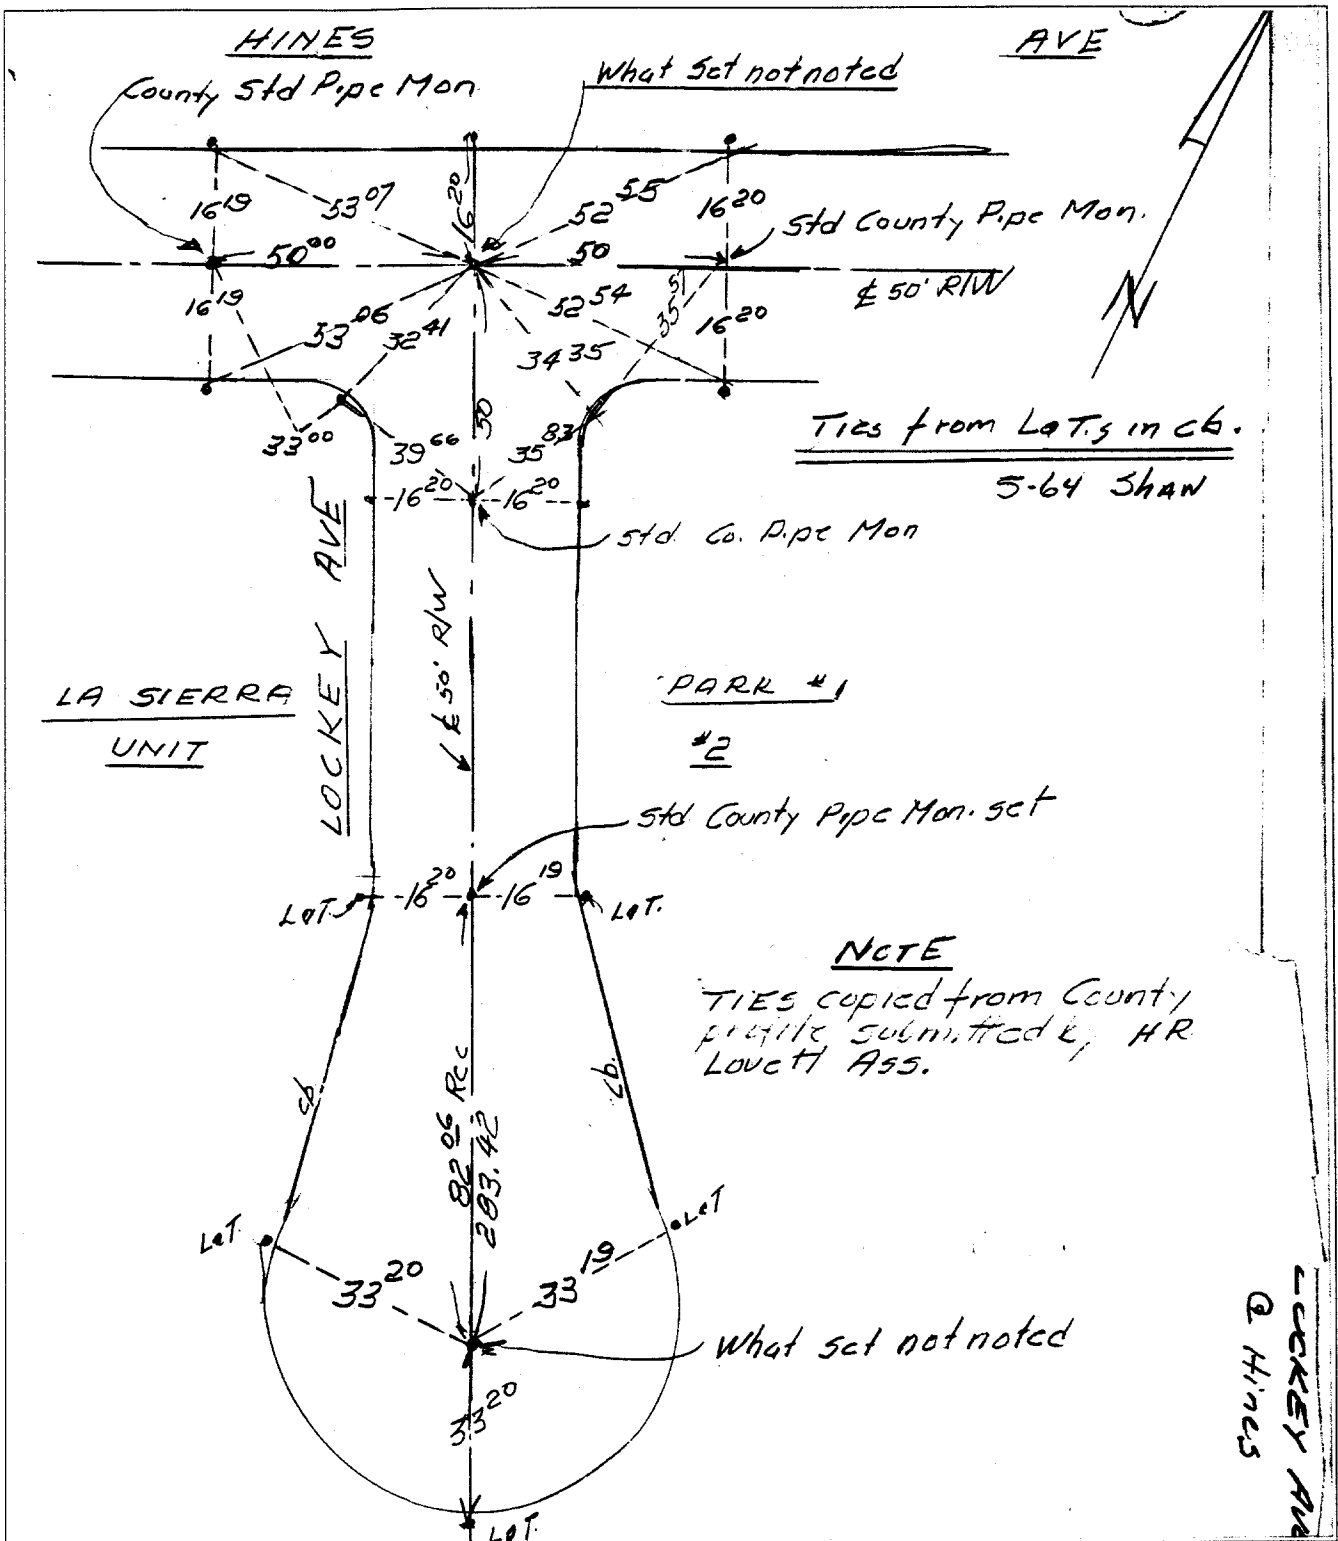 HINES
AVE
County Std Pipe Mon
What Set not noted
16 19
53 07
16 20
52 55
16 20
Std County Pipe Mon.
50 00
50
₵ 50' R/W
16 19
53 06
32 41
52 54
35 51
16 20
34 35
33 00
39 66
50
35 83
Ties from L&T.s in cb.
5-64 SHAW
16 20
16 20
Std. Co. Pipe Mon
LOCKEY AVE
₵ 50' R/W
LA SIERRA
PARK #1
UNIT
#2
Std County Pipe Mon. set
16 20
16 19
L&T.
L&T.
NOTE
TIES copied from County
profile submitted by HR
Lovett Ass.
cb.
cb.
82 06 Rec
283.42
L&T.
L&T
33 20
33 19
What set not noted
33 20
L&T.
LOCKEY AVE
@ Hines
N